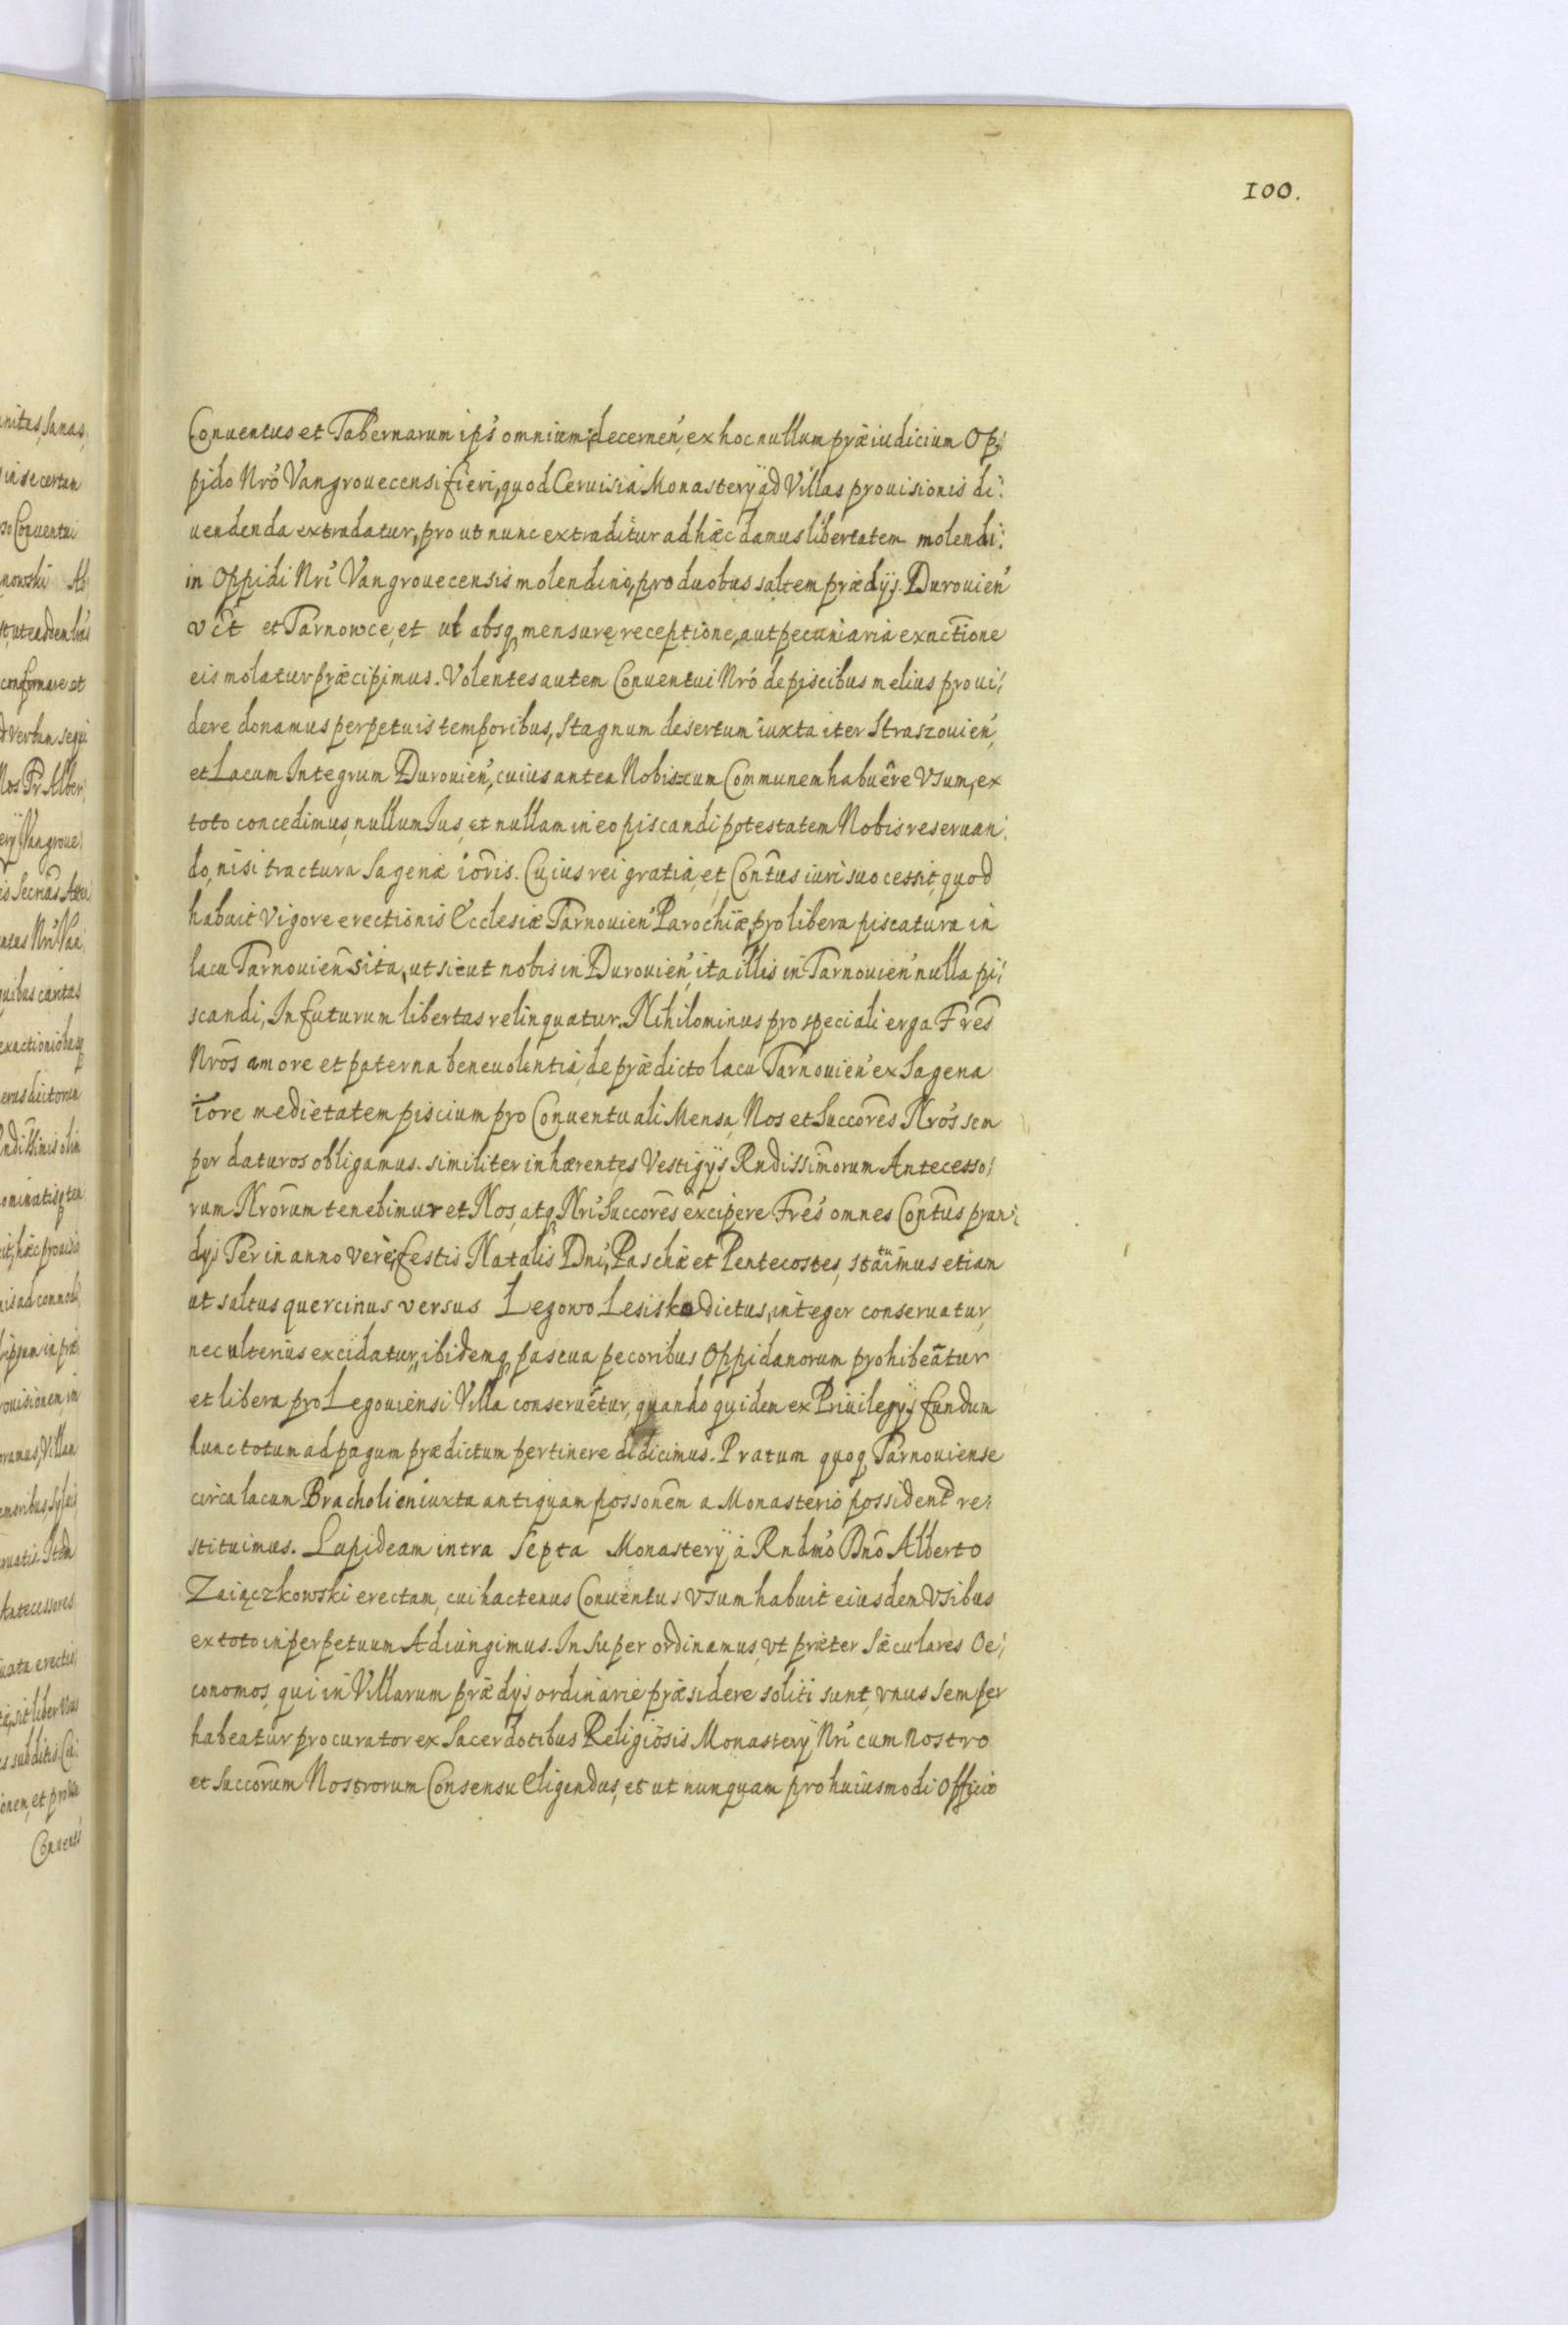 100.
Conuentus et Tabernarum ips' omnium, decernen', ex hoc nullum præiudicium Op:
pido Nro' Vangrouecensi fieri, quod Ceruisia Monasterÿ ad Villas prouisionis di:
uendenda extradatur, pro ut nunc extraditur ad hæc damus libertatem molendi:
in Oppidi Nri' Vangrouecensis molendino, pro duobus saltem prædijs. Durouien'
vc̃t et Tarnowce, et ut absq mensuræ receptione, aut pecuniaria exactione
eis molatur præcipimus. Volentes autem Conuentui Nro' de piscibus melius proui:
dere donamus perpetuis temporibus, Stagnum desertum iuxta iter Straszouien',
et Lacum Integrum Durouien', cuius antea Nobiscum Communem habuêre Vsum, ex
toto concedimus, nullum Ius, et nullam in eo piscandi potestatem Nobis reseruan:
do, nisi tractura Sagenæ ioris̃. Cuius rei gratia, et Contũs iuri suo cessit, quod
habuit Vigore erectionis Ecclesiæ Tarnouien' Parochiæ, pro libera piscatura in
lacu Tarnouien̄ sita, ut sicut nobis in Durouien', ita illis in Tarnouien' nulla pi:
scandi, In futurum libertas relinquatur. Nihilominus pro speciali erga Frẽs
Nrõs amore et paterna beneuolentia, de prædicto lacu Tarnouien' ex Sagena
iore medietatem piscium pro Conuentuali Mensa, Nos et Succorẽs Nrõs sem
per daturos obligamus. similiter inhærentes Vestigÿs Rndissimorum Antecesso:
rum Nrõrum tenebimur et Nos, atq Nri' Succorẽs excipere Frẽs omnes Contũs pran:
dÿs Ter in anno verè, festis Natalis Dni', Paschæ et Pentecostes, statuimus etiam
ut saltus quercinus versus Legowo Lesisko dictus, integer conseruatur,
nec ulterius excidatur, ibidemq pascua pecoribus Oppidanorum prohibeãtur
et libera pro Legouiensi Villa conseruẽtur, quando quidem ex Priuilegÿs fundum
hunc totum ad pagum prædictum pertinere didicimus. Pratum quoq Tarnouiense
circa lacum Bracholien iuxta antiquam possonẽm a Monasterio possidend re:
stituimus. Lapideam intra Septa Monasterÿ à Rndmo' Dnõ Alberto
Zaiączkowski erectam, cui hactenus Conuentus Vsum habuit eiusdem Vsibus
ex toto in perpetuum Adiungimus. In super ordinamus, vt præter Sæculares Oe:
conomos, qui in Villarum prædÿs ordinariè præsidere soliti sunt, vnus semper
habeatur procurator ex Sacerdotibus Religiosis Monasterÿ Nri' cum Nostro
et Succorum̃ Nostrorum Consensu Eligendus, et ut nunquam pro huiusmodi Officio